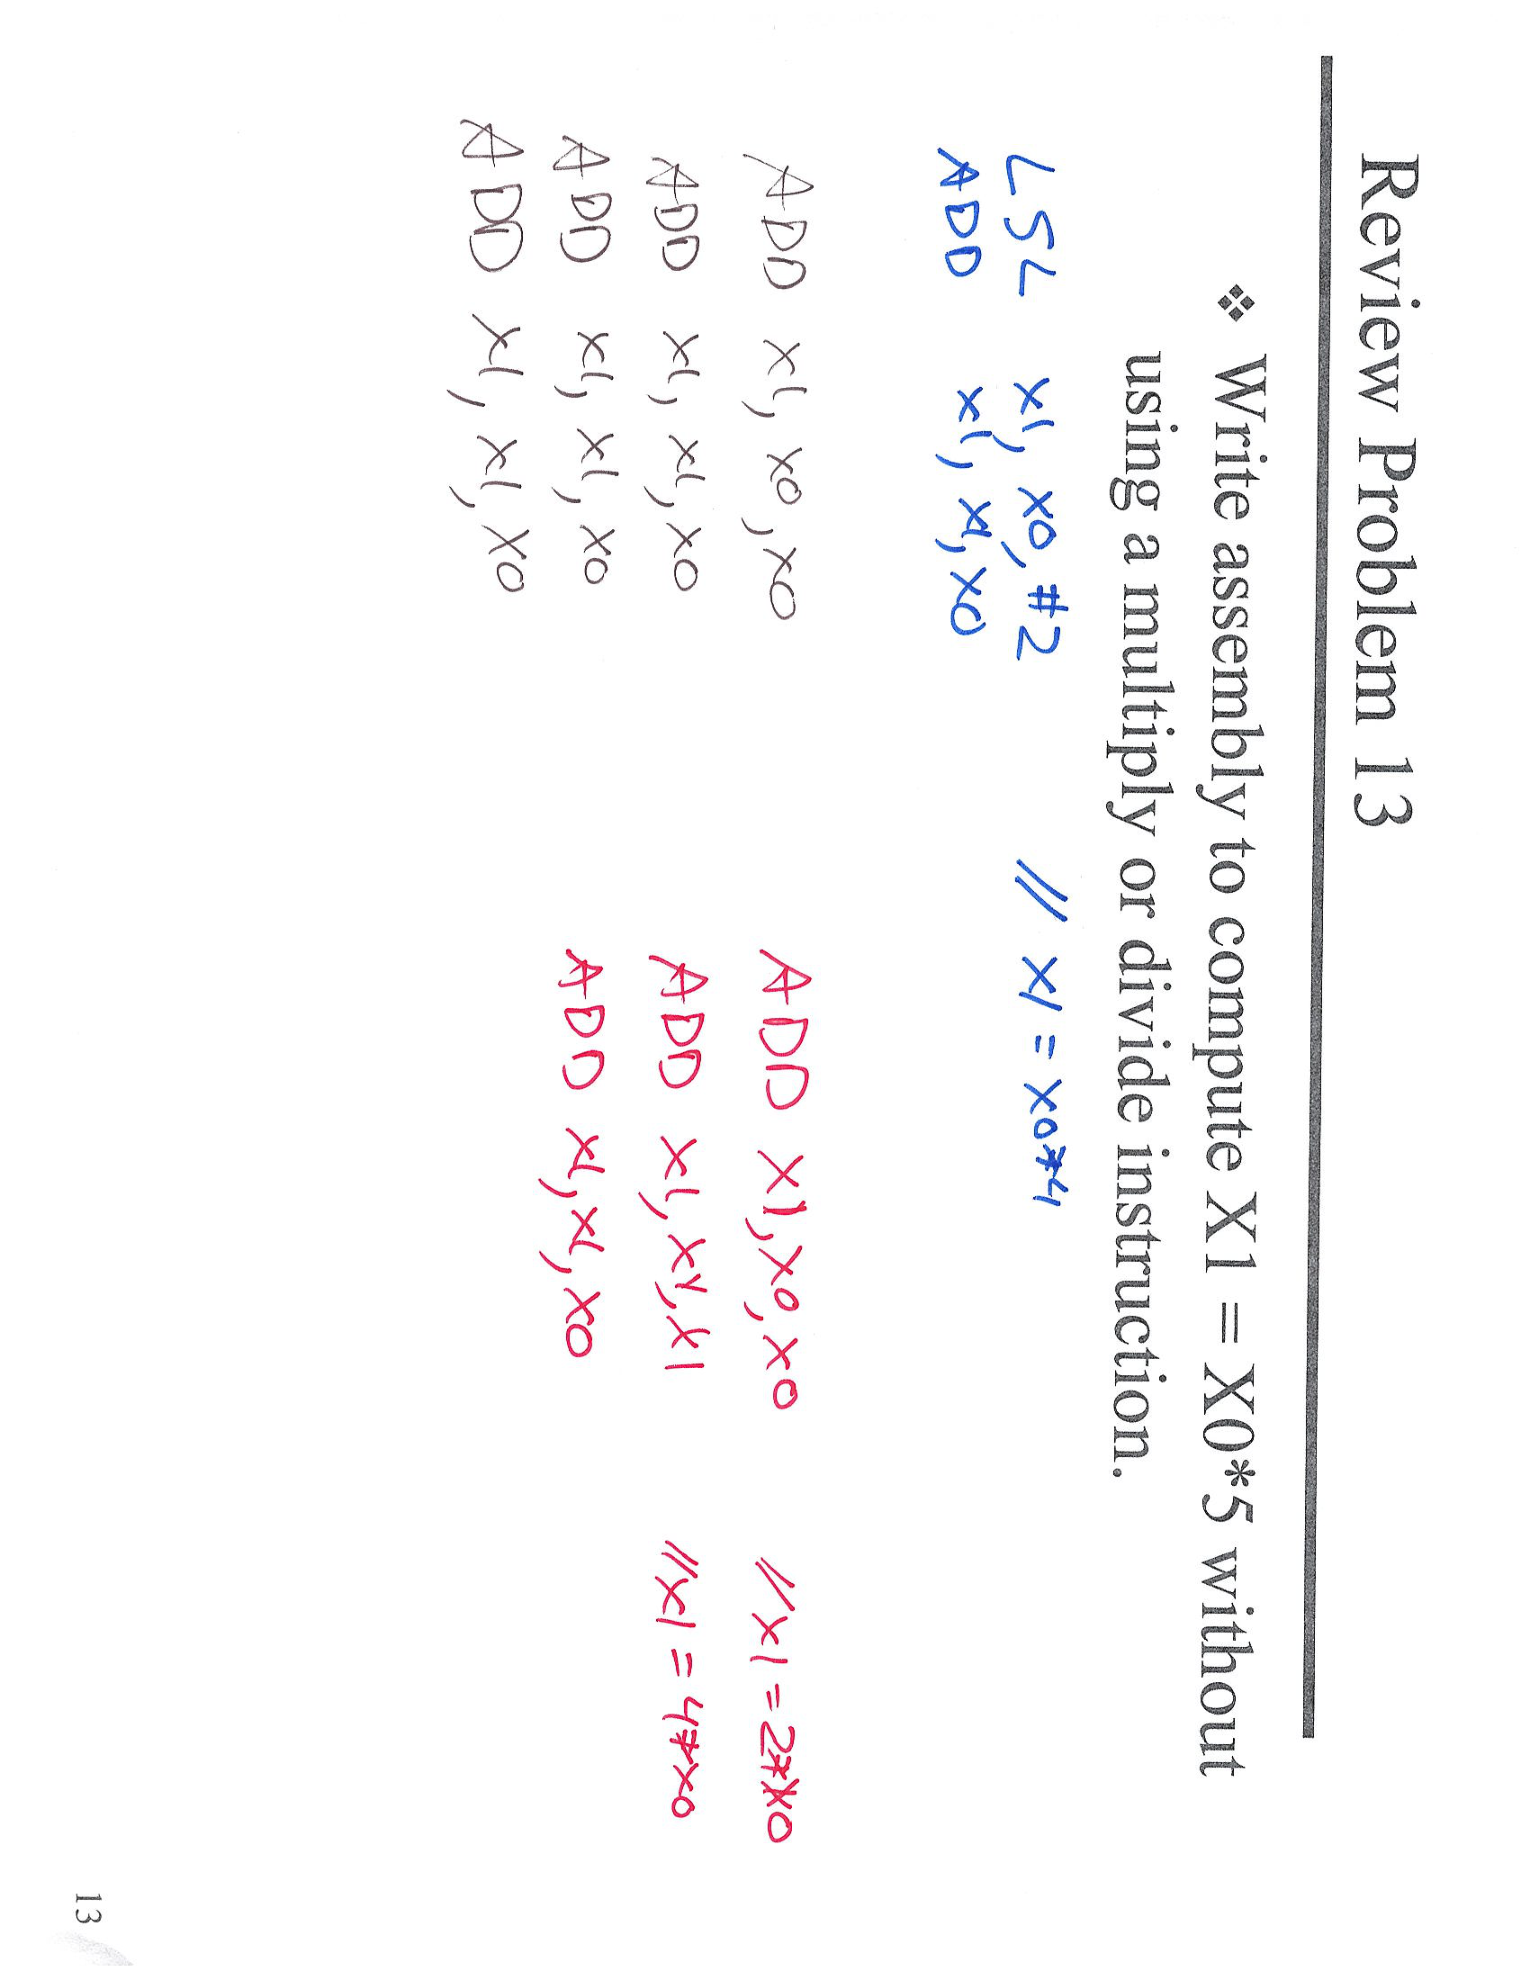 Review Problem 13
❖ Write assembly to compute X1 = X0*5 without
using a multiply or divide instruction.
LSL X1, X0, #2 // X1 = X0*4
ADD X1, X1, X0
ADD X1, X0, X0
ADD X1, X1, X0
ADD X1, X1, X0
ADD X1, X1, X0
ADD X1, X0, X0 // X1 = 2*X0
ADD X1, X1, X1 // X1 = 4*X0
ADD X1, X1, X0
13